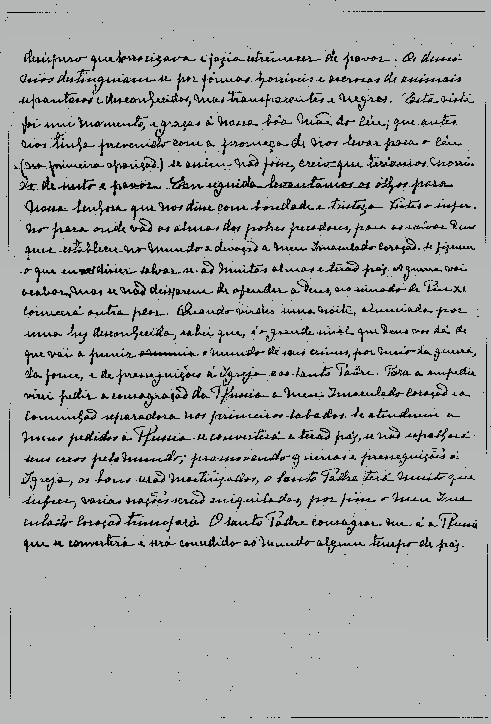 desispero que horrorizava e fazia estremecer de pavor. Os demo-
nios destinguiam-se por formas horriveis e asquerosas de animais
espantosos e desconhecidos, mas transparentes e negros. Esta vista
foi um momento, e graças á nossa bôa Mãe do Céu; que antes
nos tinha prevenido com a promeça de nos levar para o Céu
(na primeira aparição) se assim não fosse, creio que teriamos morri-
do de susto e pavor. Em seguida, levantámos os olhos para
Nossa Senhora que nos disse com bondade e tristeza Vistes o infer-
no para onde vão as almas dos pobres pecadores, para as salvar Deus
quer establecer no mundo a devoção a meu Imaculado Coração. se fizerem
o que eu vos disser salvar se ão muitas almas e terão paz. A guerra vai
acabar, mas se não deixarem de ofender a Deus, no reinado de Pio XI
começará outra peor. Quando virdes uma noite, alumiada por
uma luz desconhecida, sabei que, é o grande sinal que Deus vos dá de
que vai a punir o mundo de seus crimes, por meio da guerra,
da fome, e de perseguições á Igreja e ao Santo Padre. Para a empedir
virei pedir a consagração da Russia a meu Imaculado Coração e a
comunhão reparadora nos primeiros sabados. Se atenderem a
meus pedidos a Russia se converterá e terão paz, se não espalhará
seus erros pelo mundo; promovendo guerras e perseguições á
Igreja, os bons serão martirizados, o Santo Padre terá muito que
sofrer, varias nações serão aniquiladas, por fim o meu Ima-
culado Coração triunfará. O Santo Padre consagrar-me-á a Russia
que se converterá e será concedido ao mundo algum tempo de paz.